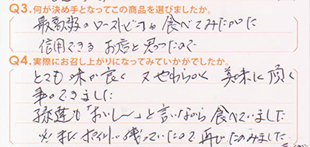 Q3.何が決め手となってこの商品を選びましたか。
のローストビーフが食べてみたかった
信用できるお店と思ったので
Q4.実際にお召し上がりになってみていかがでしたか。
とても味が良く 又やわらかく 美味に頂く
事ができました
孫達も「おいしい〜」と言いながら食べていました
ので再びたのみました